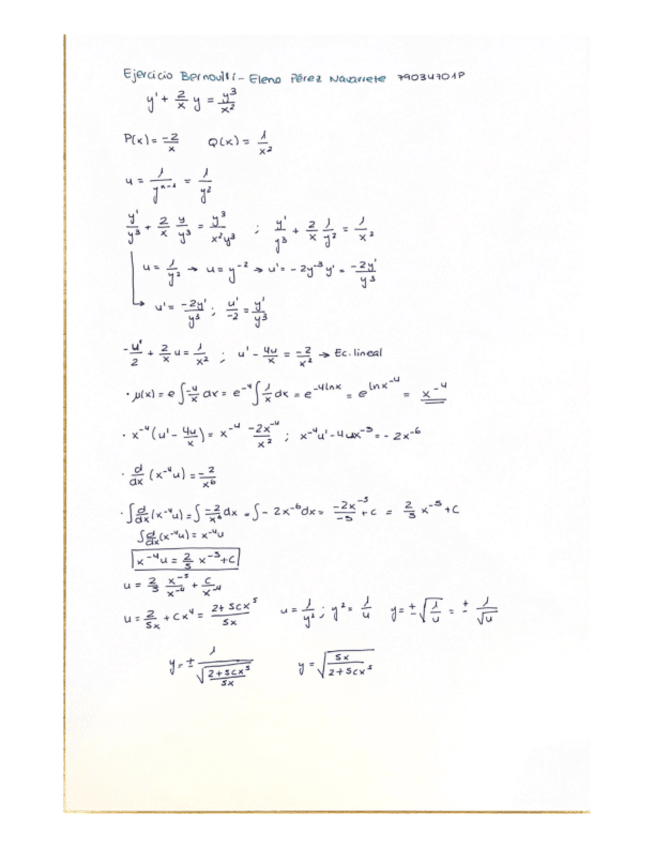 Ejercicio Bernoulli - Elena Pérez Navarrete 79034701P
y' + 2/x y = y³/x²
P(x) = -2/x   Q(x) = 1/x²
u = 1/yⁿ⁻¹ = 1/y²
y'/y³ + 2/x y/y³ = y³/x²y³ ; y'/y³ + 2/x 1/y² = 1/x²
u = 1/y² → u = y⁻² → u' = -2y⁻³y' = -2y'/y³
→ u' = -2y'/y³ ; u'/-2 = y'/y³
-u'/2 + 2/x u = 1/x² ; u' - 4u/x = -2/x² → Ec. lineal
· μ(x) = e∫-4/x dx = e⁻⁴∫1/x dx = e⁻⁴ˡⁿˣ = e^(ln x⁻⁴) = x⁻⁴
· x⁻⁴(u' - 4u/x) = x⁻⁴ -2x⁻⁴/x² ; x⁻⁴u' - 4ux⁻⁵ = -2x⁻⁶
· d/dx (x⁻⁴u) = -2/x⁶
· ∫d/dx(x⁻⁴u) = ∫-2/x⁶ dx = ∫-2x⁻⁶dx = -2x⁻⁵/-5 + C = 2/5 x⁻⁵ + C
∫d/dx(x⁻⁴u) = x⁻⁴u
x⁻⁴u = 2/5 x⁻⁵ + C
u = 2/5 x⁻⁵/x⁻⁴ + C/x⁻⁴
u = 2/5x + Cx⁴ = 2+5Cx⁵/5x   u = 1/y² ; y² = 1/u   y = ±√(1/u) = ± 1/√u
y = ± 1/√(2+5Cx⁵/5x)   y = √(5x/2+5Cx⁵)